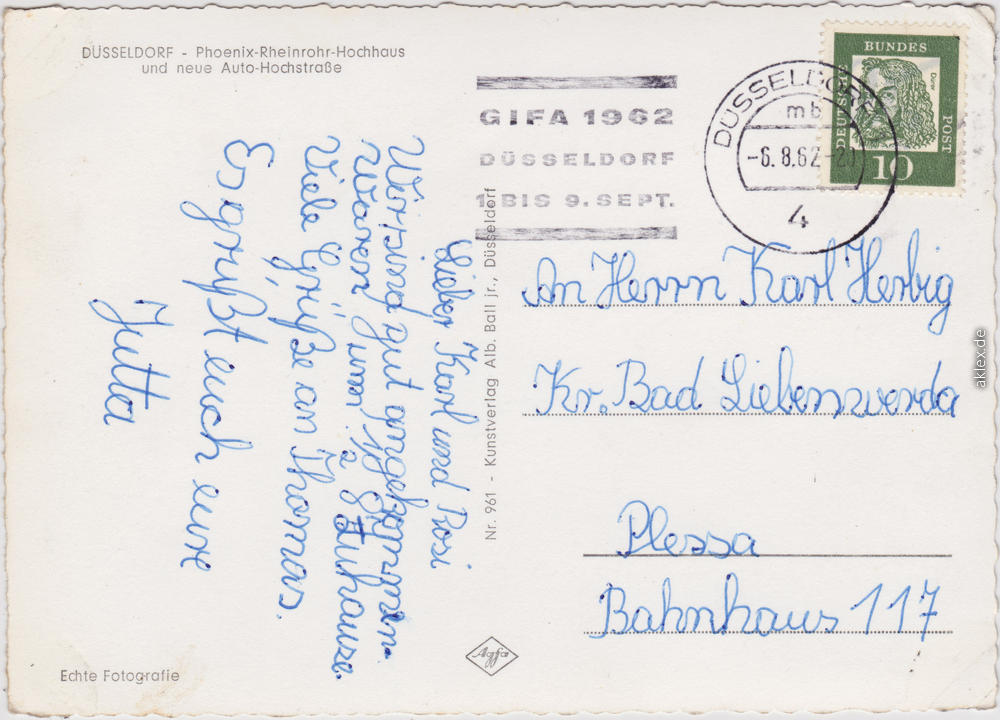 DÜSSELDORF - Phoenix-Rheinrohr-Hochhaus
und neue Auto-Hochstraße
GIFA 1962
DÜSSELDORF
1. BIS 9. SEPT.
DÜSSELDORF
mb
-6.8.62-21
4
DEUTSCHE
BUNDES
POST
Dürer
10
Lieber Karl und Rosi
Wir sind gut angekommen.
Waren um ½ 8 Zuhause.
Viele Grüße an Thomas.
Es grüßt euch eure
Jutta
Nr. 961 - Kunstverlag Alb. Ball jr., Düsseldorf
An Herrn Karl Herbig
Kr. Bad Liebenwerda
Plessa
Bahnhaus 117
Agfa
Echte Fotografie
aklex.de